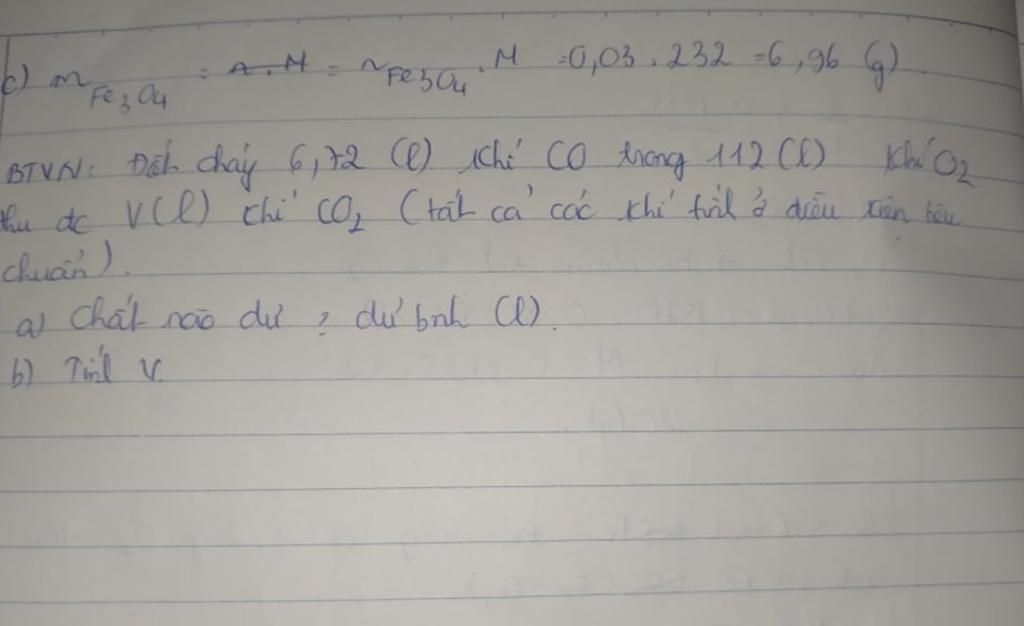 c) m Fe3O4 = n.M = nFe3O4 . M = 0,03 . 232 = 6,96 (g)
BTVN: Đốt cháy 6,72 (l) khí CO trong 112 (l) khí O2
thu dc V(l) khí CO2 (tất cả các khí tính ở điều kiện tiêu
chuẩn).
a) Chất nào dư ? dư bnh (l).
b) Tính V.